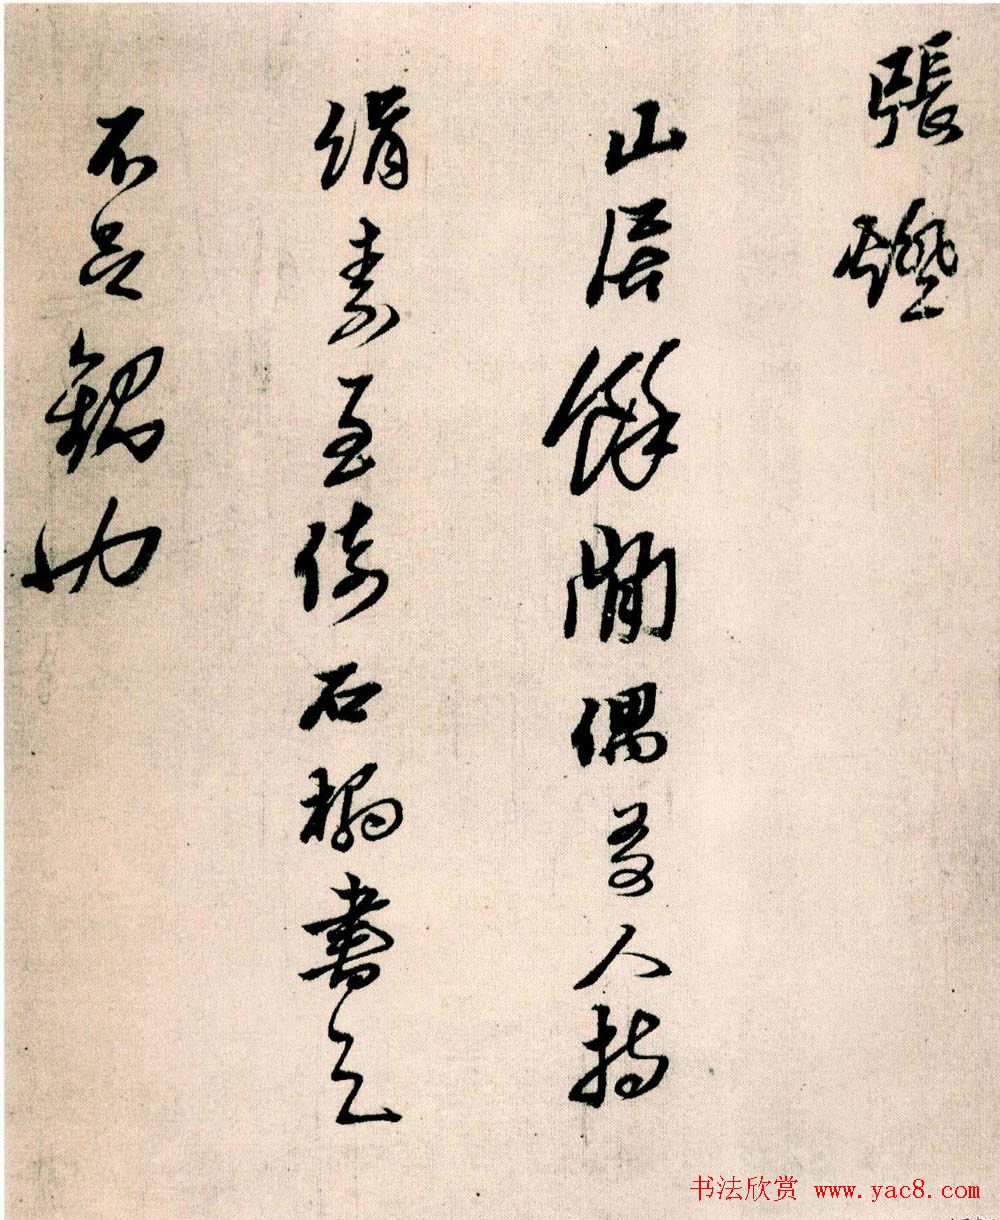 張
山居餘閒偶友人持
絹素至倚石榻書之
不足觀也
书法欣赏 www.yac8.com